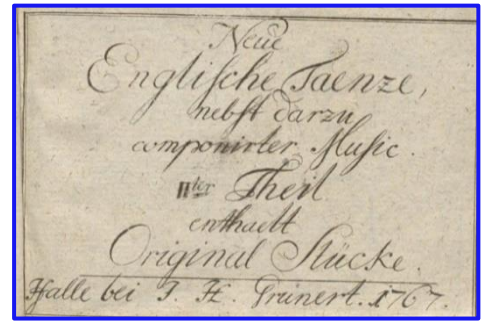 Neue
Englische Taenze,
nebst darzu
componirter Music.
IIter Theil
enthaelt
Original Stücke.
Halle bei J. H. Grunert. 1767.